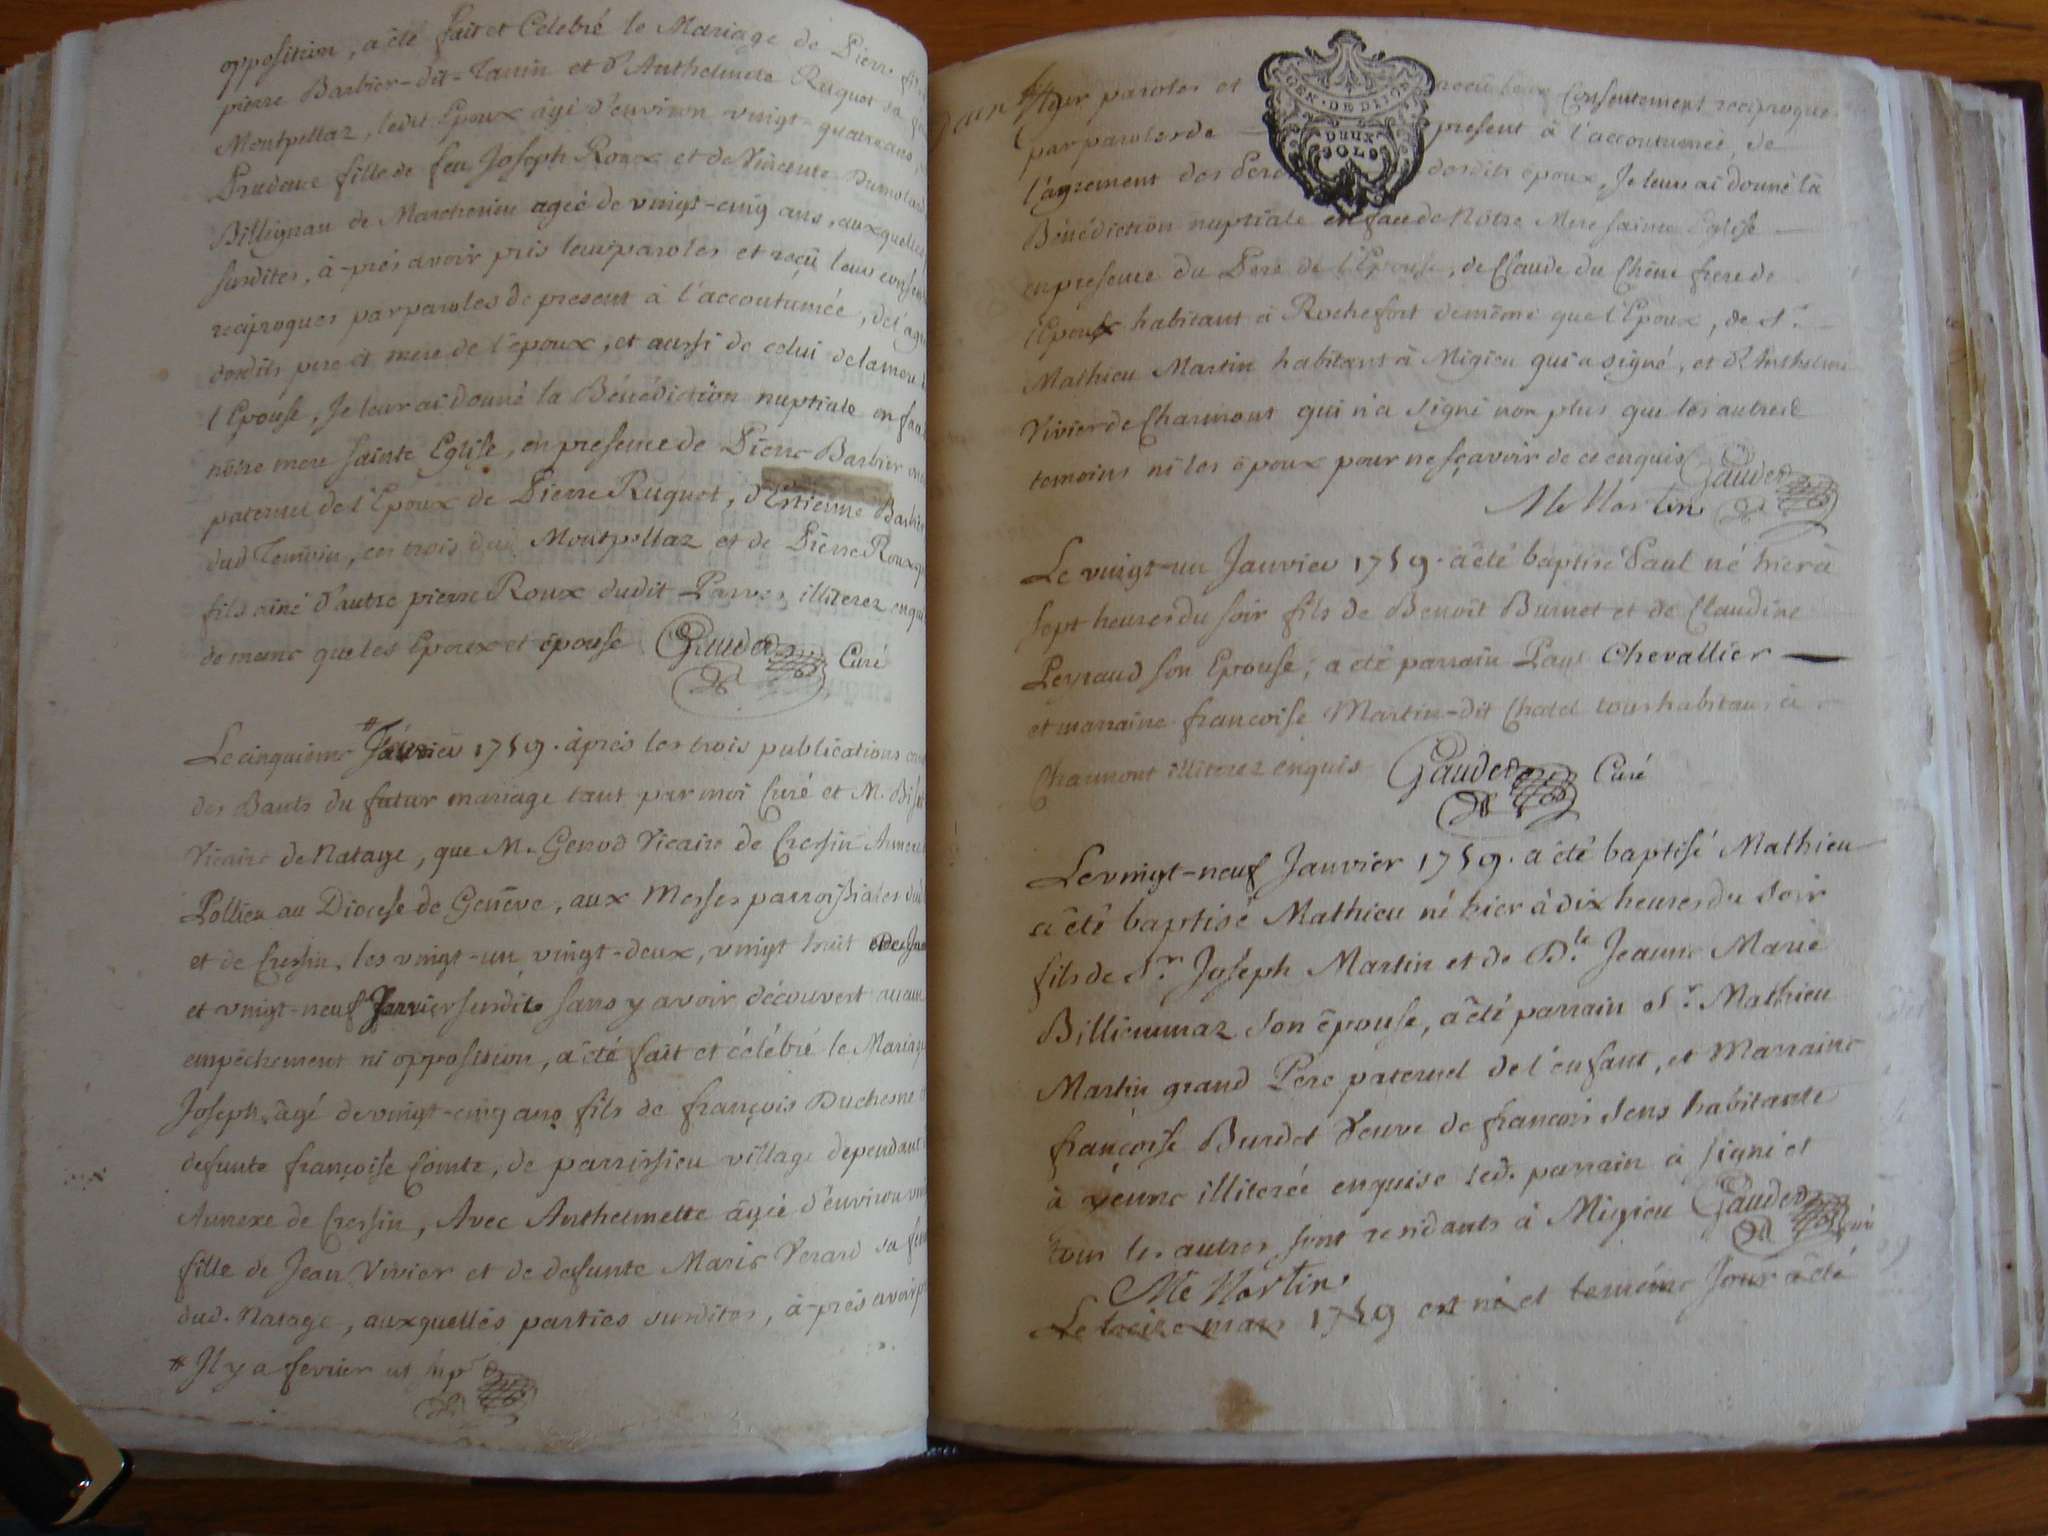 opposition, a été fait et Celebré le Mariage de Pierre
pierre Barbier-dit-Tanin et d'Anthelmete Ruguet sa
Montpellaz, ledit Epoux âgé d'environ vingt-quatre ans,
Prudence fille de feu Joseph Roux et de Vincente Dumolard
Billignau de Marchesieu ageé de vingt-cinq ans, auxquelles
susdites, à-prés avoir pris leur paroles et reçû leur consen
reciproques par paroles de present à l'accoutumée, de l'agre
desdits pere et mere de l'époux, et aussi de celui de la mere
l'Epouse, Je leur ai donné la Bénédiction nuptiale en face
nôtre mere sainte Eglise, en presence de Pierre Barbier
paternel de l'Epoux de Pierre Ruguet, d'Estienne Barbier
dud Temoin, ces trois dud Montpellaz et de Pierre Roux
fils ainé d'autre pierre Roux dudit Parves illiterez enquis
de meme que les Epoux et épouse Gaudet Curé
Le cinquieme # 1759. àprés les trois publications
des Bants du futur mariage tant par moi Curé et M.
Vicaire de Natage, que M. Genod Vicaire de Cressin Annexe
Pollieu au Diocese de Genéve, aux Messes parroissiales dud
et de Cressin, les vingt-un vingt-deux, vingt huit
et vingt-neuf Janvier susdits sans y avoir découvert aucun
empêchement ni opposition, a été fait et célébré le Mariage
Joseph, âgé de vingt-cinq ans fils de françois Duchesne
defunte françoise Comte, de parrissieu village dependant
Annexe de Cressin, Avec Anthelmette âgée d'environ
fille de Jean Vivier et de defunte Marie Verard sa
dud. Natage, auxquelles parties susdites, à-prés avoir
# Il y a fevrier
leur paroles et reçû leur Consentement reciproques
par paroles de present à l'accoutumée, de
l'agrement des Peres desdits époux, Je leur ai donné la
Bénédiction nuptiale en face de Nôtre Mere sainte Eglise
en presence du Pere de l'Epouse, de Claude du Chêne frere de
l'Epoux habitant à Rochefort de même que l'Epoux, de Sr.
Mathieu Martin habitant à Migieu qui a signé, et d'Anthelme
Vivier de Charmont qui n'a signé non plus que les autres
temoins ni les époux pour ne sçavoir de ce enquis Gaudet
Me Martin
Le vingt-un Janvier 1759. a été baptisé Paul né hier à
sept heures du soir fils de Benoit Burnet et de Claudine
Peyraud son Epouse; a été parrain Paul Chevallier
et marraine françoise Martin-dit Chatel tous habitans à
Charmont illiterez enquis Gaudet Curé
Le vingt-neuf Janvier 1759. a été baptisé Mathieu
a été baptisé Mathieu né hier à dix heures du soir
fils de Sr. Joséph Martin et de Dle. Jeanne Marie
Billiemaz son épouse, a été parrain Sr. Mathieu
Martin grand Pere paternel de l'enfant, et Marraine
françoise Burdet Veuve de francois habitante
à yenne illiterée enquise led. parrain a signé et
tous les autres sont residants à Migieu Gaudet curé
Me Martin
Le treize mars 1759 est né et le même Jour a été